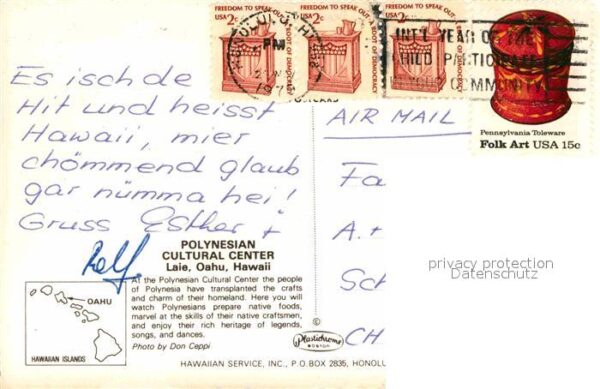 FREEDOM TO SPEAK OUT
A ROOT OF DEMOCRACY
USA 2c
FREEDOM TO SPEAK OUT
A ROOT OF DEMOCRACY
USA 2c
USA 2c
A ROOT OF DEMOCRACY
HONOLULU, HI
PM
INT'L YEAR OF THE
CHILD PARTICIPATE
IN YOUR COMMUNITY
Pennsylvania Toleware
Folk Art USA 15c
AIR MAIL
Es isch de
Hit und heisst
Hawaii, mier
chömmend glaub
gar nümma hei!
Gruss Esther +
Rolf
Fa
A. +
Sch
CH
privacy protection
Datenschutz
POLYNESIAN
CULTURAL CENTER
Laie, Oahu, Hawaii
At the Polynesian Cultural Center the people
of Polynesia have transplanted the crafts
and charm of their homeland. Here you will
watch Polynesians prepare native foods,
marvel at the skills of their native craftsmen,
and enjoy their rich heritage of legends,
songs, and dances.
Photo by Don Ceppi
OAHU
HAWAIIAN ISLANDS
©
Plastichrome
BOSTON
HAWAIIAN SERVICE, INC., P.O.BOX 2835, HONOLU